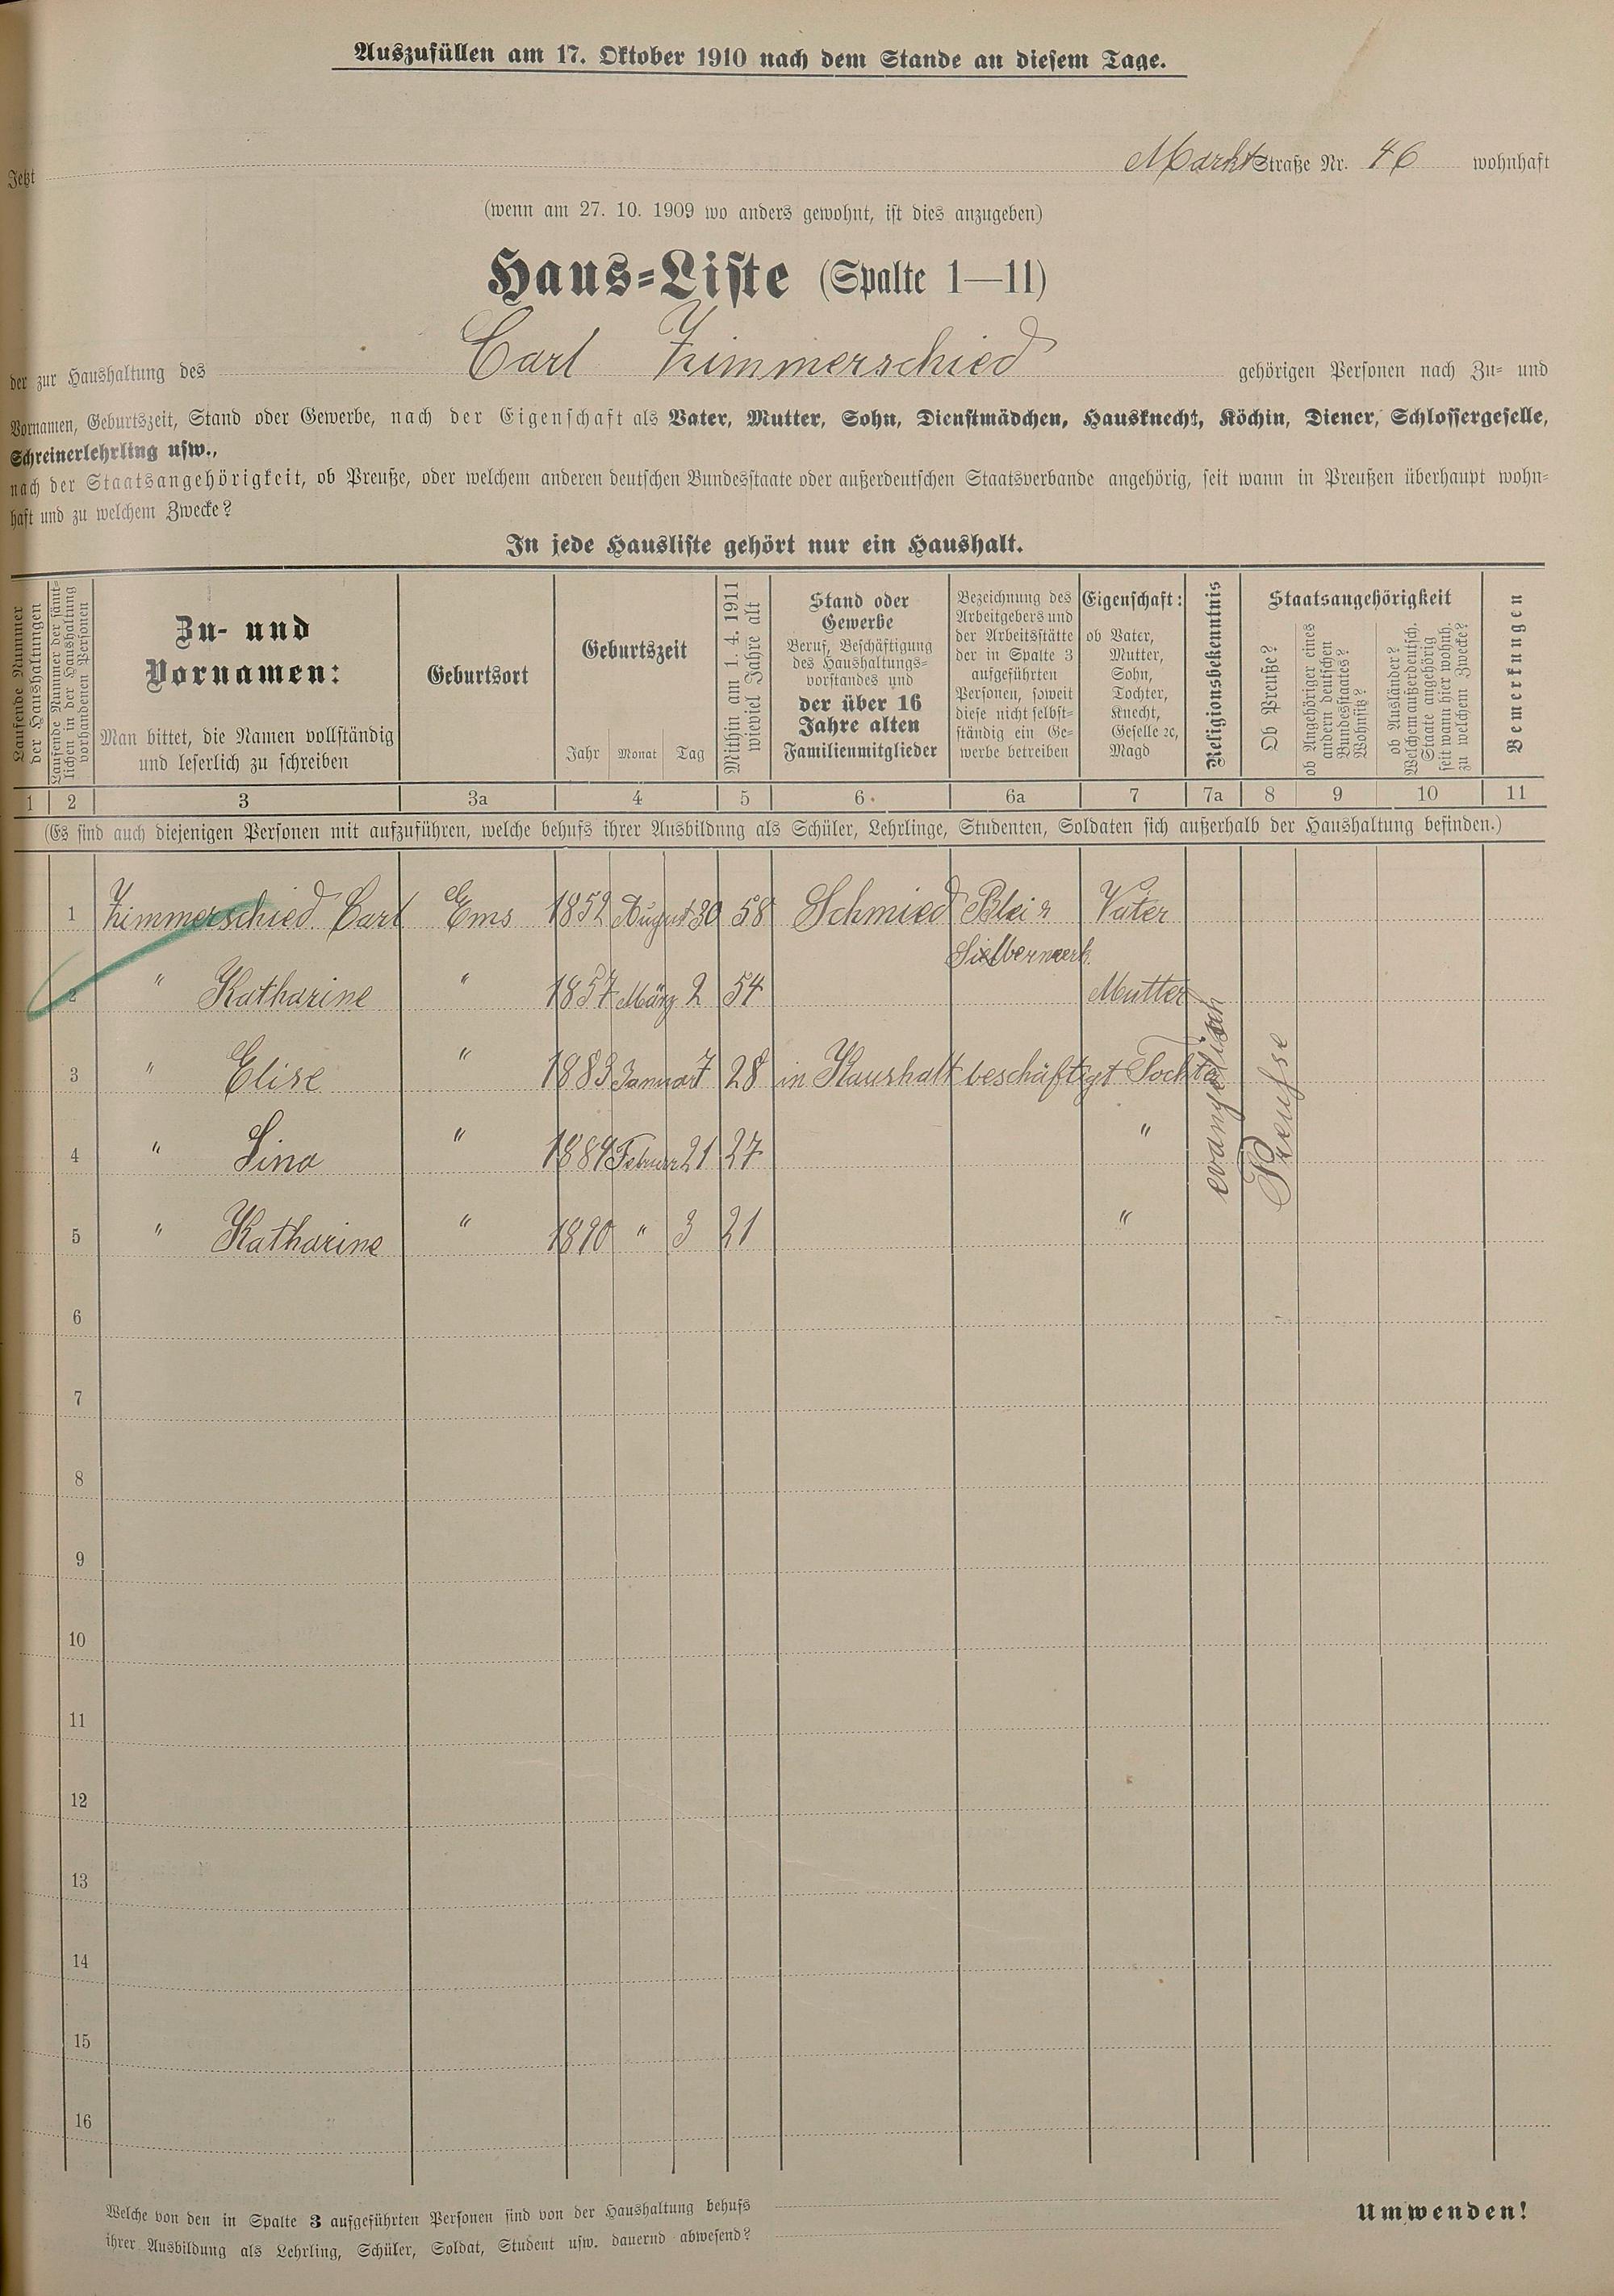 Auszufüllen am 17. Oktober 1910 nach dem Stande an diesem Tage.
Jetzt Markt Straße Nr. 46 wohnhaft
(wenn am 27. 10. 1909 wo anders gewohnt, ist dies anzugeben)
Haus-Liste (Spalte 1—11)
der zur Haushaltung des Carl Zimmerschied gehörigen Personen nach Zu- und
Vornamen, Geburtszeit, Stand oder Gewerbe, nach der Eigenschaft als Vater, Mutter, Sohn, Dienstmädchen, Hausknecht, Köchin, Diener, Schlossergeselle,
Schreinerlehrling usw.,
nach der Staatsangehörigkeit, ob Preuße, oder welchem anderen deutschen Bundesstaate oder außerdeutschen Staatsverbande angehörig, seit wann in Preußen überhaupt wohn-
haft und zu welchem Zwecke?
In jede Hausliste gehört nur ein Haushalt.
Laufende Nummer
der Haushaltungen
Laufende Nummer der sämt-
lichen in der Haushaltung
vorhandenen Personen
Zu- und
Vornamen:
Man bittet, die Namen vollständig
und leserlich zu schreiben
Geburtsort
Geburtszeit
Jahr Monat Tag
Mithin am 1. 4. 1911
wieviel Jahre alt
Stand oder
Gewerbe
Beruf, Beschäftigung
des Haushaltungs-
vorstandes und
der über 16
Jahre alten
Familienmitglieder
Bezeichnung des
Arbeitgebers und
der Arbeitsstätte
der in Spalte 3
aufgeführten
Personen, soweit
diese nicht selbst-
ständig ein Ge-
werbe betreiben
Eigenschaft:
ob Vater,
Mutter,
Sohn,
Tochter,
Knecht,
Geselle ꝛc,
Magd
Religionsbekenntnis
Staatsangehörigkeit
Ob Preuße?
ob Angehöriger eines
andern deutschen
Bundesstaates?
Wohnsitz?
ob Ausländer?
Welchem außerdeutsch.
Staate angehörig
seit wann hier wohnh.
zu welchem Zwecke?
Bemerkungen
1 2 3 3a 4 5 6 6a 7 7a 8 9 10 11
(Es sind auch diejenigen Personen mit aufzuführen, welche behufs ihrer Ausbildung als Schüler, Lehrlinge, Studenten, Soldaten sich außerhalb der Haushaltung befinden.)
1 Zimmerschied Carl Ems 1852 August 30 58 Schmied Blei u Vater
Silberwerk
2 " Katharine " 1857 März 2 54 Mutter
3 " Elise " 1883 Januar 7 28 in Haushalt beschäftigt Tochter
4 " Lina " 1884 Februar 21 27 "
5 " Katharine " 1890 " 3 21 "
evangelisch
Preußse
6
7
8
9
10
11
12
13
14
15
16
Welche von den in Spalte 3 aufgeführten Personen sind von der Haushaltung behufs
ihrer Ausbildung als Lehrling, Schüler, Soldat, Student usw. dauernd abwesend?
Umwenden!